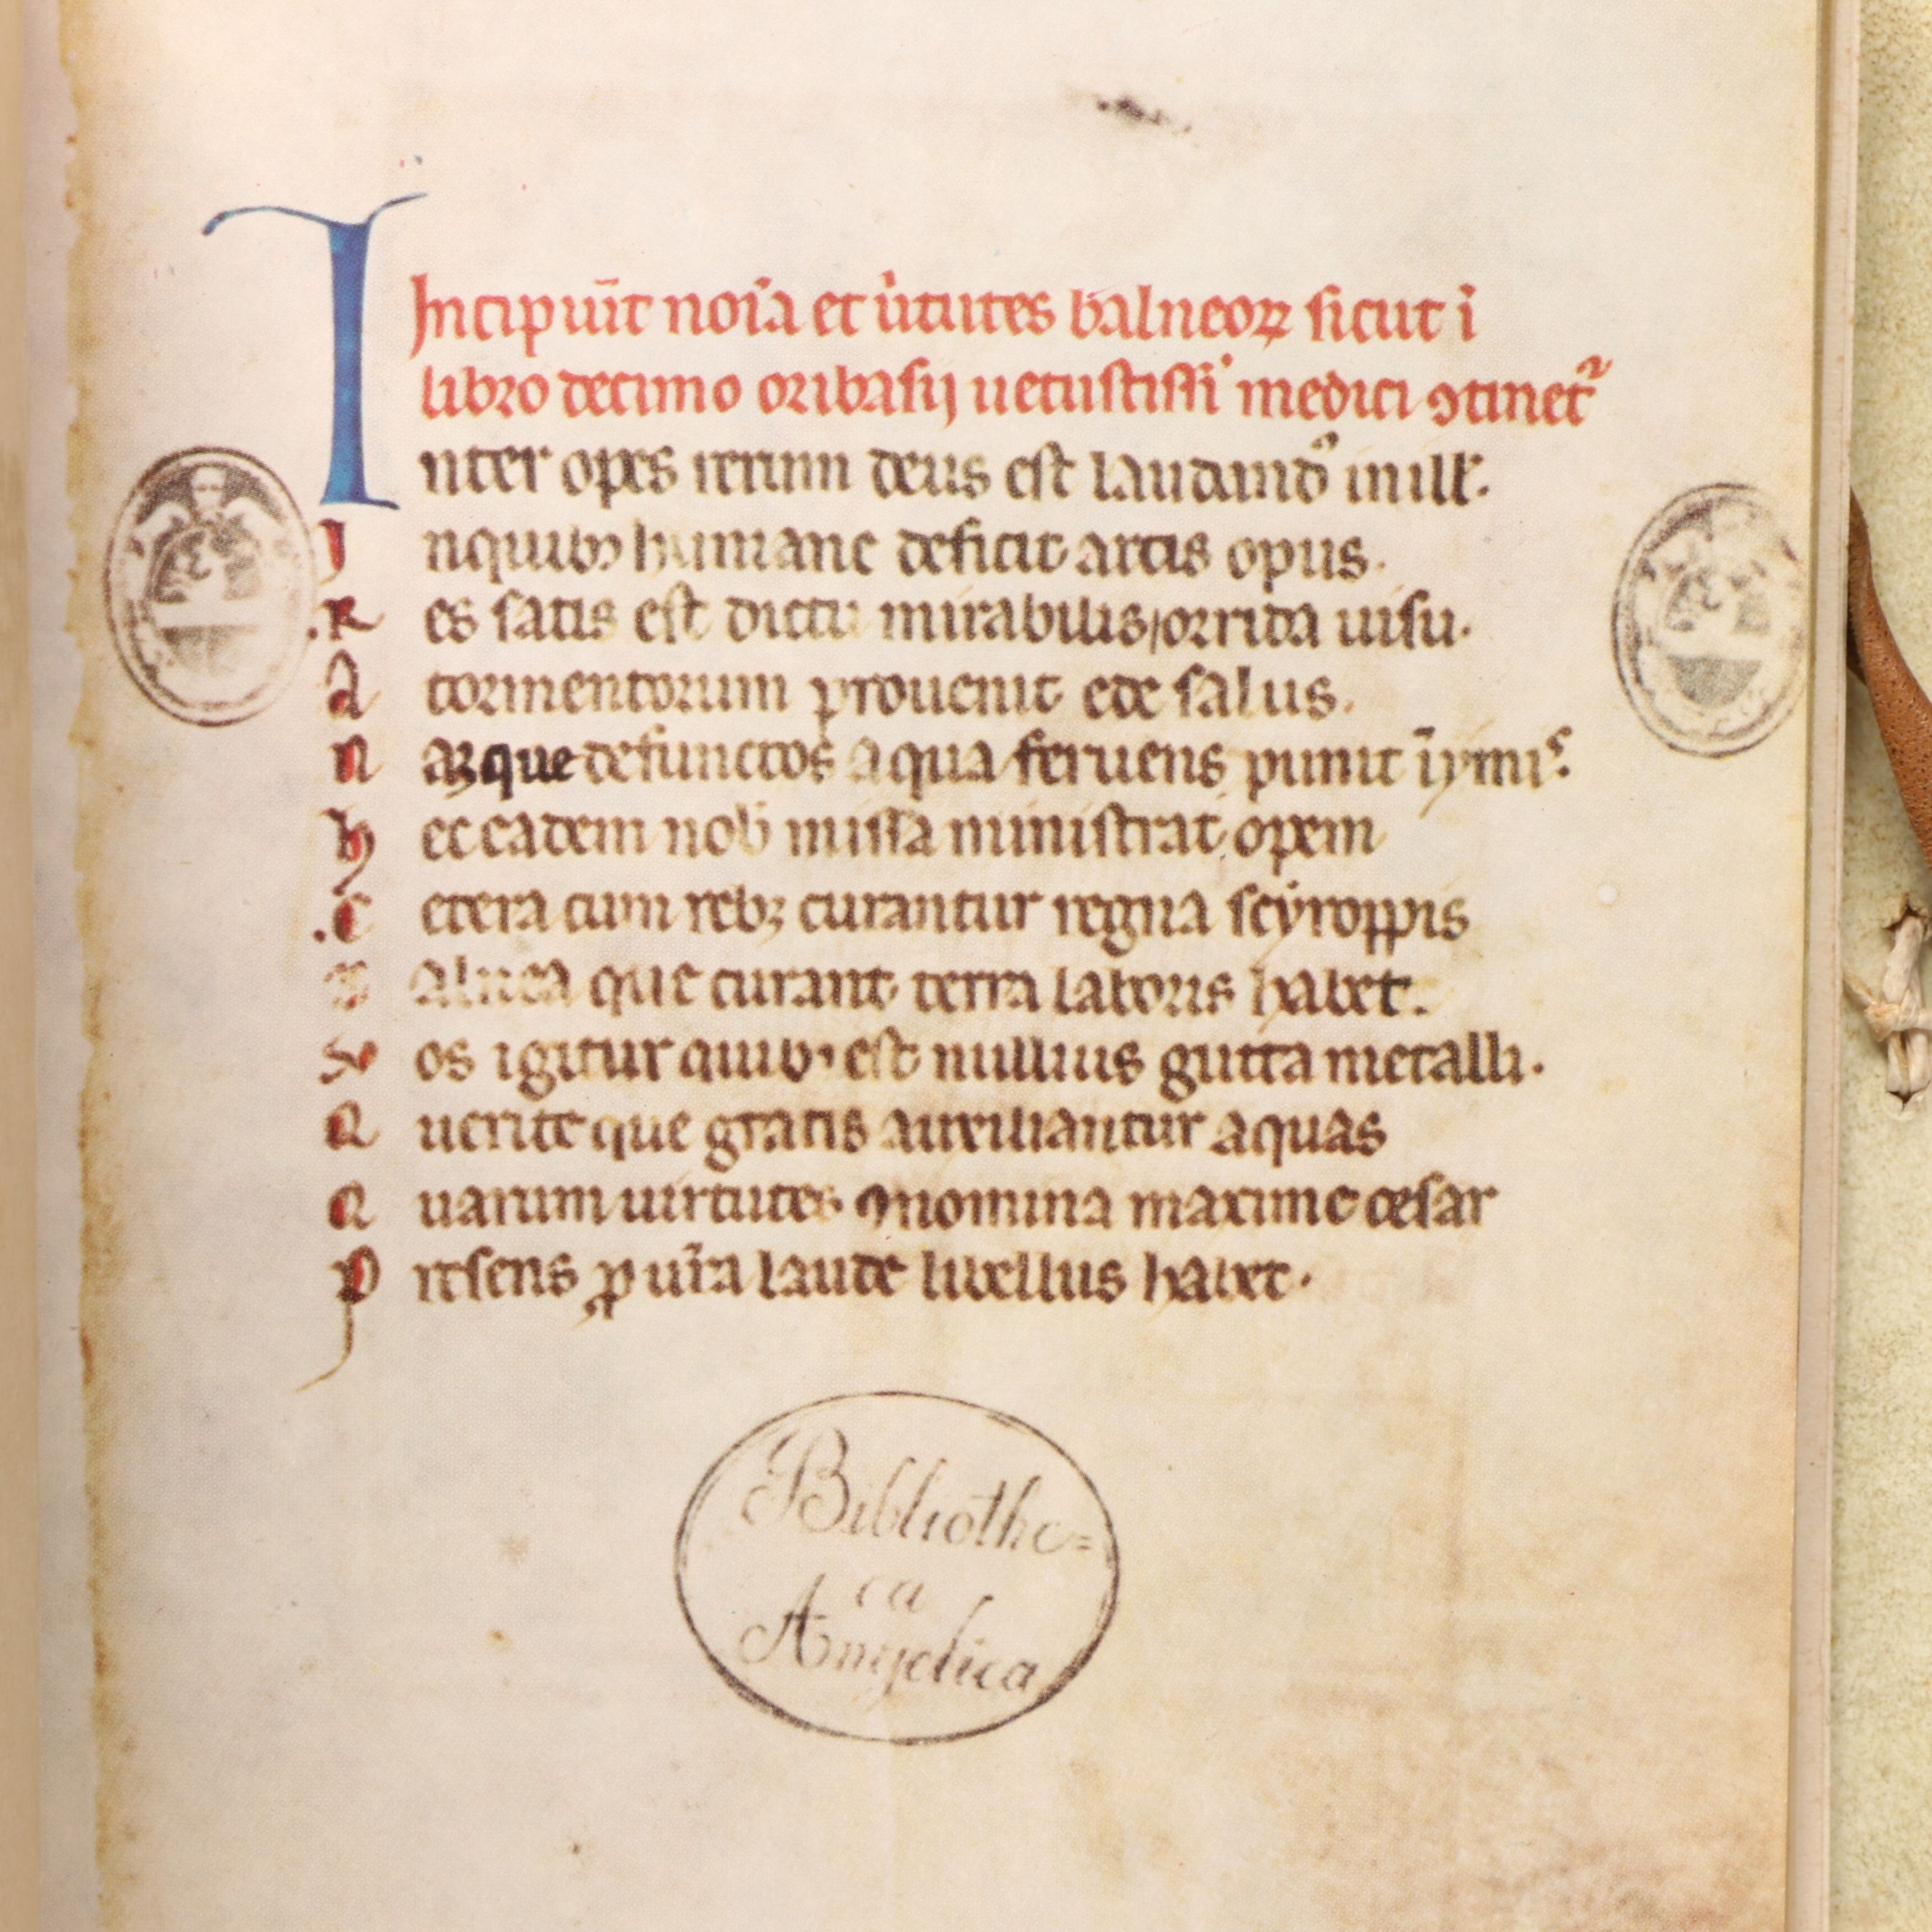 Incipiu̅t no̅ı̅a et u̍tutes balneoꝝ sicut ı̅
libro decimo oribasij uetustissi medici ꝯtinet᷑
Inter opes rerum deus est laudandꝰ in ill̕.
Inquibꝫ humane deficit artis opus.
.Res satis est dictu mirabilis/orrida uisu.
A tormentorum prouenit ede salus.
Naꝫque defunctos aqua feruens punit ı̅ ymis.
hec eadem nob̕ missa ministrat opem
.Cetera cum rebꝫ curantur regna scẏroppis
Balnea que curant terra laboris habet.
Vos igitur quibꝰ est nullius gutta metalli.
Querite que gratis auxiliantur aquas
Quarum uirtutes ꝯ nomina maxime cesar
Presens ꝓ ur̅a laude libellus habet.
Bibliothe=
ca
Angelica